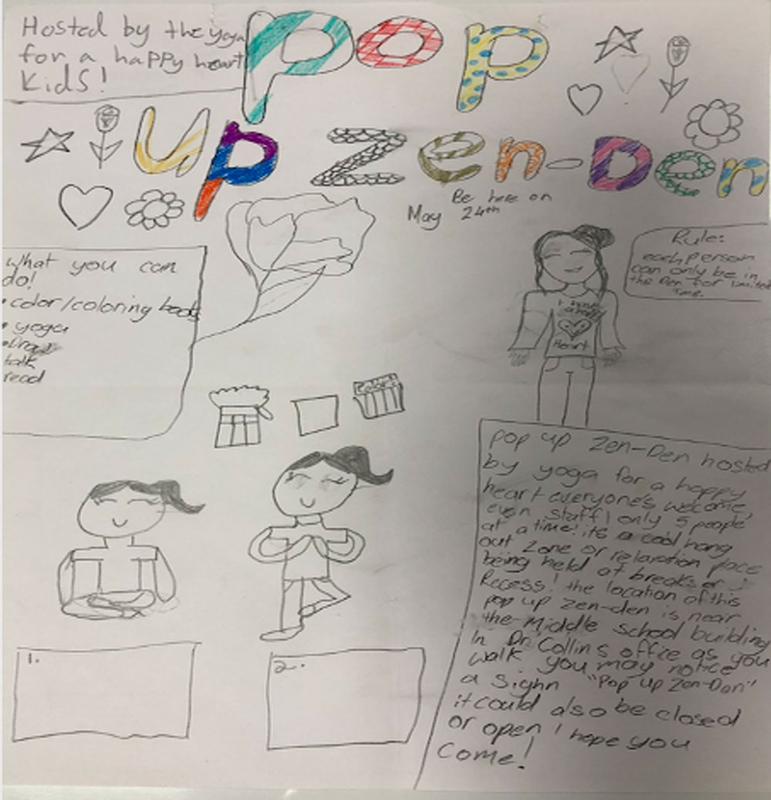 Hosted by the yoga
for a happy heart
Kids!
Pop
up zen-Den
Be here on
May 24th
What you can
do!
• color/coloring books
• yoga
talk
read
Colors
Rule:
each person
can only be in
the Den for limited
time.
I have
a happy
Heart
pop up Zen-Den hosted
by yoga for a happy
heart everyone's welcome,
even staff! only 5 people
at a time! its a cool hang
out zone or relaxation place
being held at breaks or
Recess! the location of this
pop up zen-den is near
the middle school building
In Dr. Collins office as you
walk you may notice
a sighn "Pop up Zen-Den"
it could also be closed
or open! hope you
Come!
1.
2.